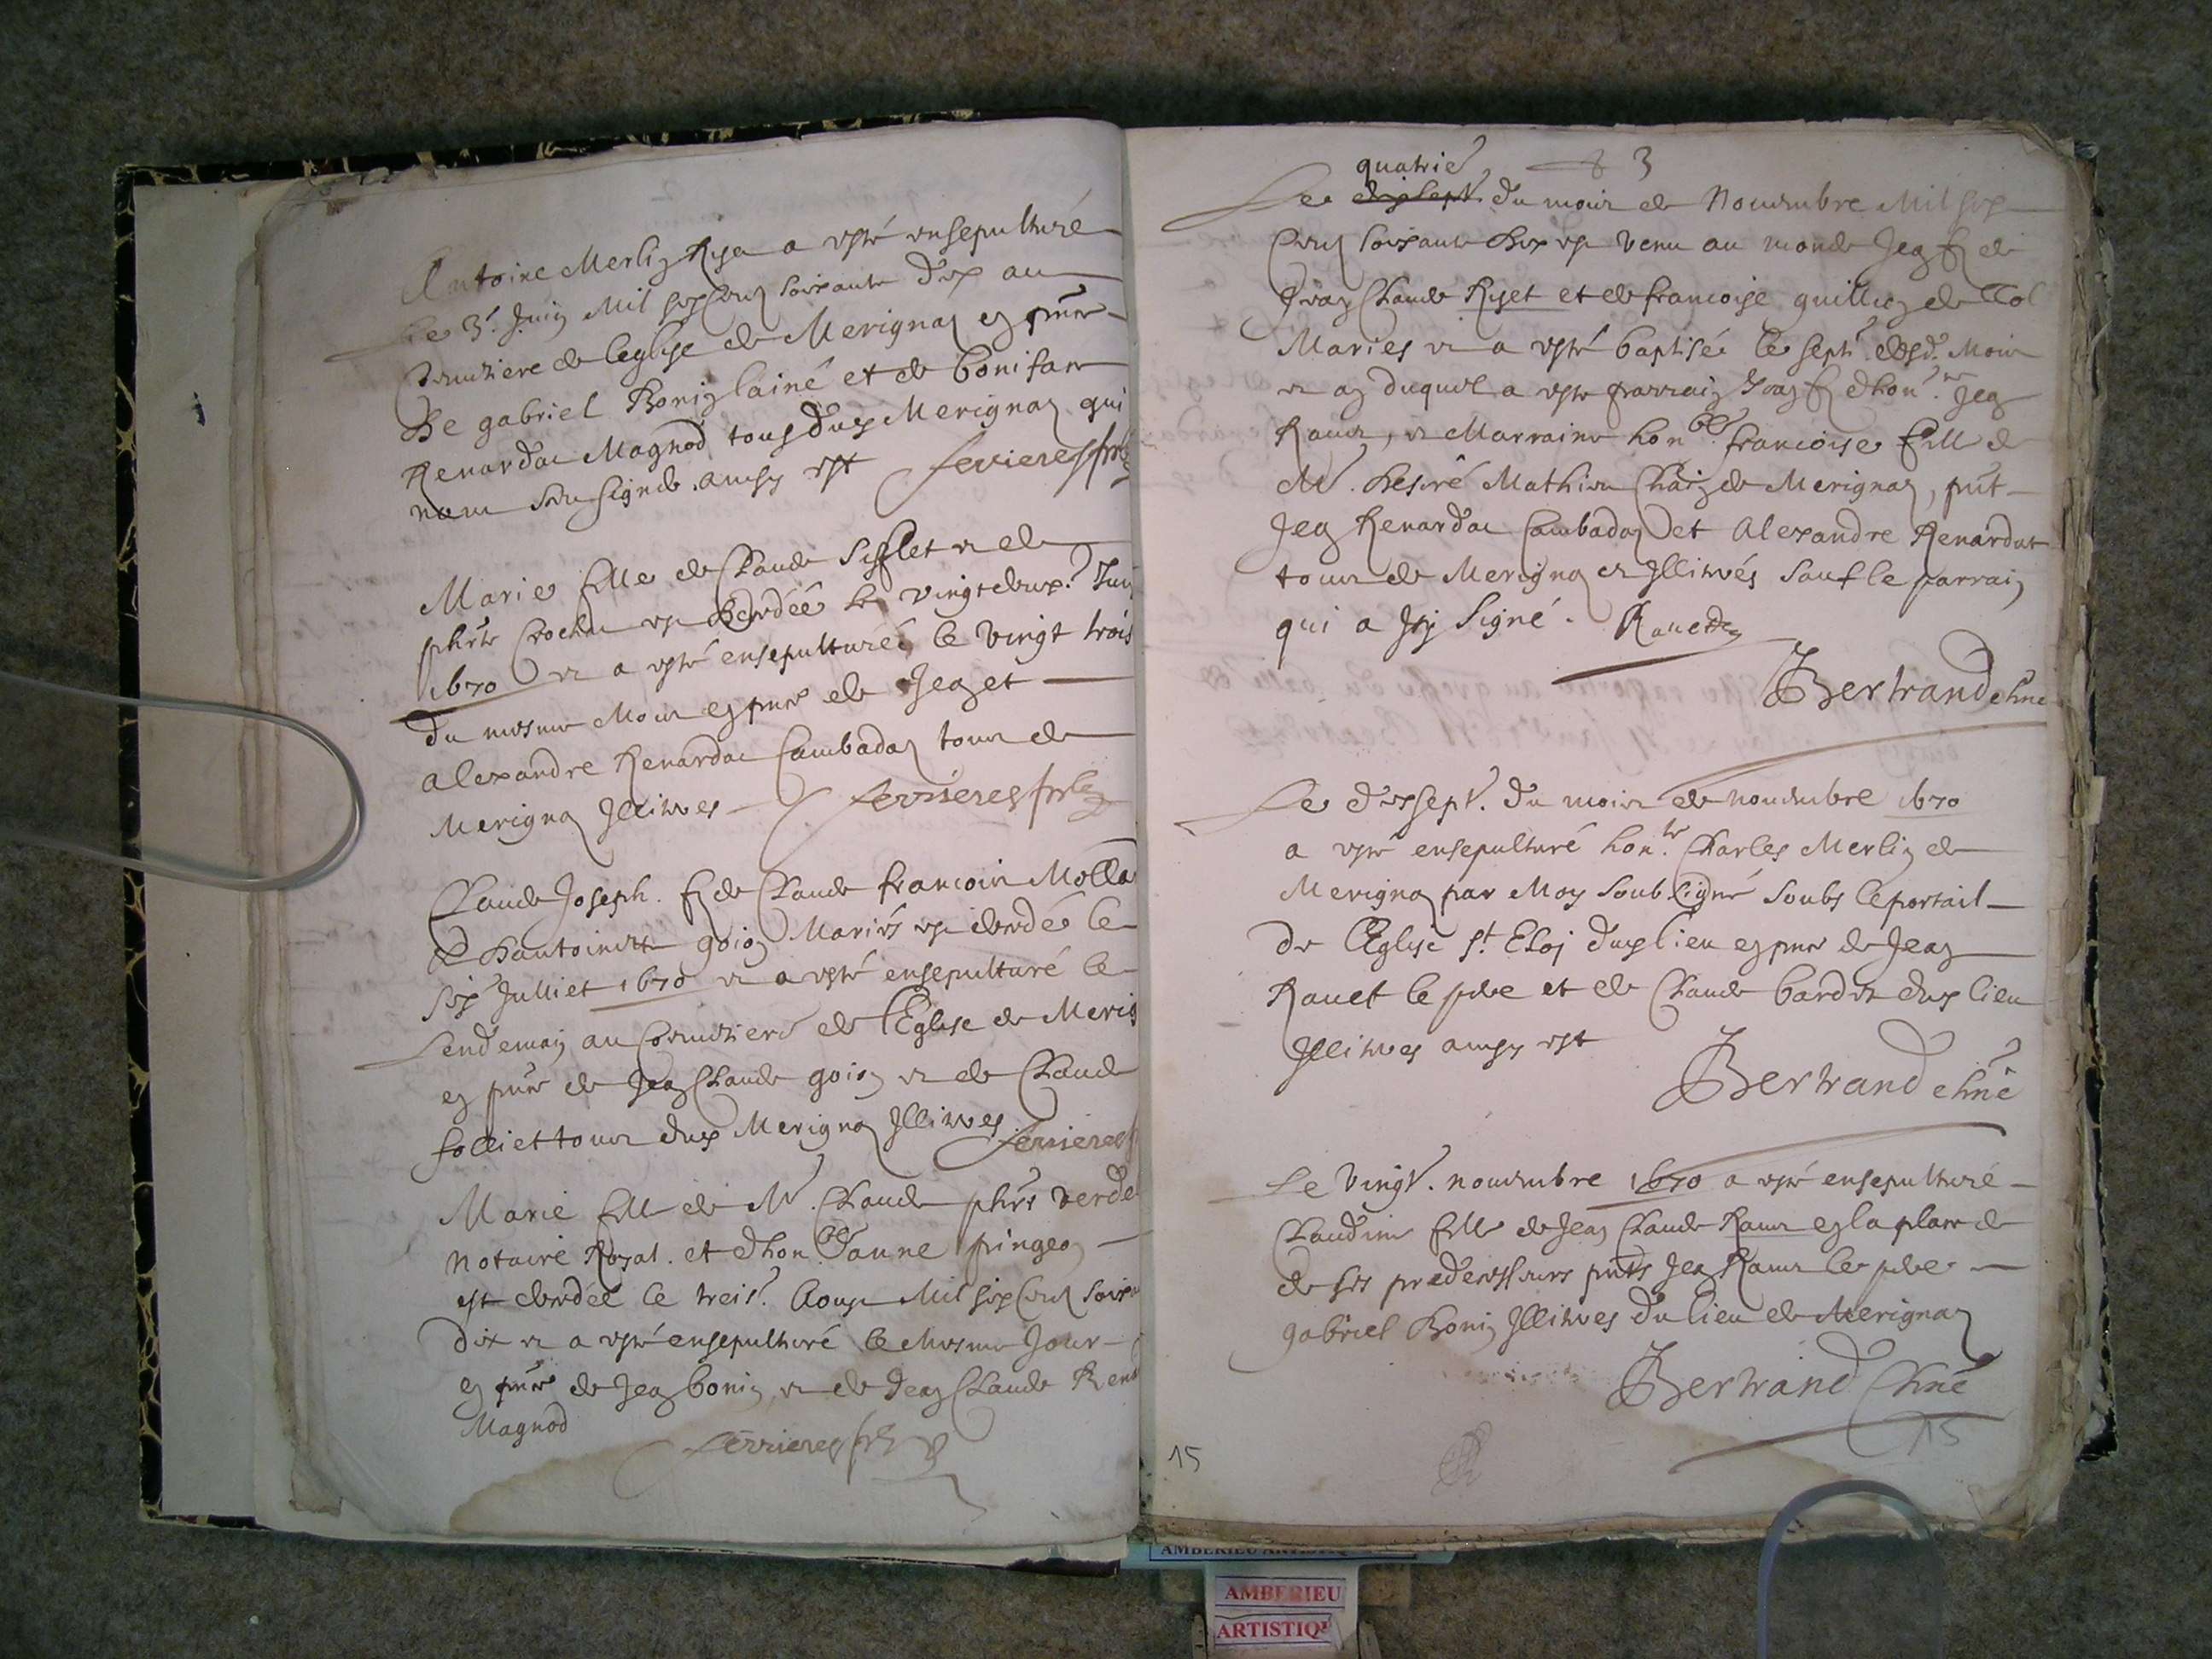 Antoine Merlin a esté ensepulturé
Le 3e. Juin Mil six cens soixante dix au
Cemetiere de leglise de Merignaz en pnce
De gabriel Bonin lainé et de boniface
Renardat Magnod tous dud Merignaz qui
nont soubsigné. ainsy est ferrieres
Marie fille de Claude Sifflet et de
phte Crochat est decedée le vingtdeux.e Juin
1670 et a esté ensepulturée le vingt trois
du mesme Mois en pnce de Jean et
alexandre Renardat Cambadaz tous de
Merignaz Illitres ferrieres
Claude Joseph. f de Claude francois Molla
Et dantoinette goion Mariés est decedé le
six Julliet 1670 et a esté ensepulturé le
Lendemain au Cemetiere de l'Eglise de Merig
en pnce de Jean Claude goion et de Claude
folliet tous dud Merignaz Illitres ferrieres
Marie fille de Mr. Claude phts verde
Notaire Royal. et dhon.ble Janne pingeon
est decedée le treis.e Aoust Mil six cens soixa
dix et a esté ensepulturé le Mesme Jour
en pnce de Jean bonin et de Jean Claude Rena
Magnod
ferrieres
3
quatrie
Le dixsept. du mois de Novembre Mil six
Cens soixante dix est venu au monde Jean f de
Jean Claude Ryset et de francoise guillion de Col
Maries et a esté baptisée le septe. dud. Mois
et an duquel a esté parrain Jean f dhon.te Jean
Ravet, et Marraine hon.ble francoise fille de
Mr. Desiré Mathieu Chain de Merignaz, pnt
Jean Renardat Cambadaz et Alexandre Renardat
tous de Merignaz et Illitrés Sauf le parrain
qui a Icy Signé. Ravet
Bertrand chne
Le dixsept. du mois de novembre 1670
a esté ensepulturé hon.te Charles Merlin de
Merignaz par Moy Soubsigné Soubs le portail
de l'Eglise St. Eloj dud lieu en pnce de Jean
Ravet le pere et de Claude bardet dud lieu
Illitres ainsy est
Bertrand chne
Le vingt. novembre 1670 a esté ensepulturé
Claudine fille de Jean Claude Ravet en la place de
de ses predecesseurs pnts Jean Ravet le pere
gabriel Bonin Illitres du lieu de Merignaz
Bertrand Chne
15
15
AMBERIEU ARTISTIQ
AMBERIEU
ARTISTIQ